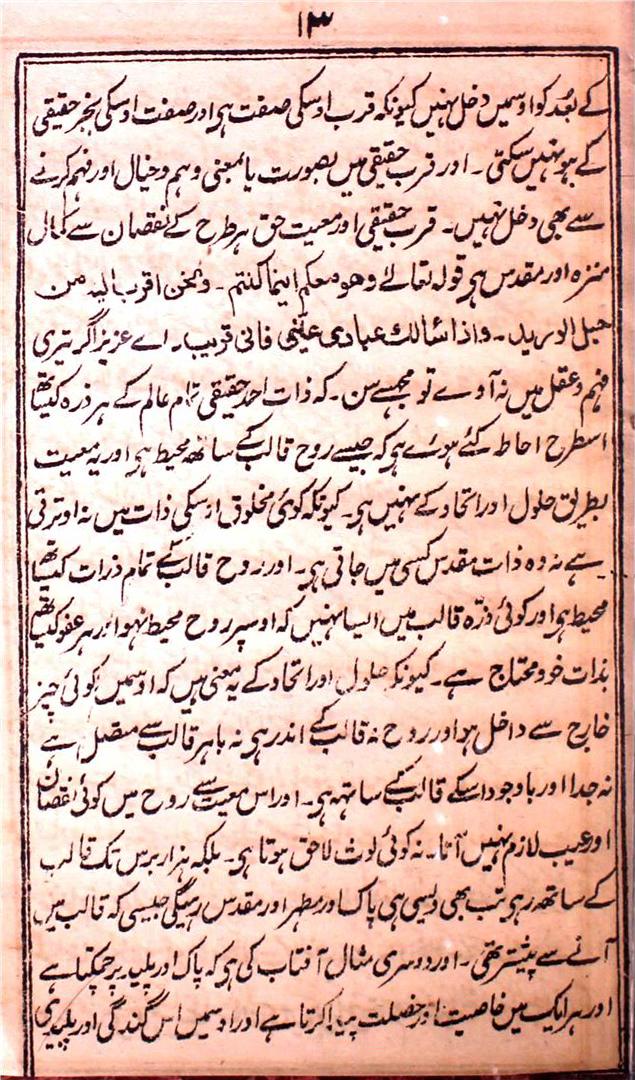 ۱۳
کے بُعد کو اوسمیں دخل نہیں کیونکہ قرب اوسکی صفت ہی اور صفت اوسکی بغیر حقیقی
کے ہو نہیں سکتی ۔ اور قرب حقیقی میں بصورت یا بمعنی وہم و خیال اور فہم کرنے
سے بھی دخل نہیں ۔ قرب حقیقی اور معیت حق ہر طرح کے نقصان سے کمال
منزہ اور مقدس ہی قولہ تعالےٰ وھو معکم اینما کنتم ۔ ونحن اقرب الیہ من
حبل الورید ۔ واذا سالک عبادی عنّی فانی قریب ۔ اے عزیز اگر تیری
فہم و عقل میں نہ آوے تو مجھسے سن ۔ کہ ذات احد حقیقی تمام عالم کے ہر ذرہ کیساتھ
اسطرح احاطہ کئے ہوئے ہی کہ جیسے روح قالب کے ساتھ محیط ہی اور یہ معیت
بطریق حلول اور اتحاد کے نہیں ہی ۔ کیونکہ کوئی مخلوق اوسکی ذات میں نہ اوترتی
ہے نہ وہ ذات مقدس کسی میں جاتی ہی ۔ اور روح قالب کے تمام ذرات کیساتھ
محیط ہی اور کوئی ذرّہ قالب میں ایسا نہیں کہ اوسپر روح محیط نہو اور ہر عضو کیساتھ
بذات خود محتاج ہے ۔ کیونکہ حلول اور اتحاد کے یہ معنی ہیں کہ اوسمیں کوئی چیز
خارج سے داخل ہو اور روح نہ قالب کے اندر ہی نہ باہر قالب سے متصل ہے
نہ جدا اور باوجود اسکے قالب کے ساتھ ہی ۔ اور اس معیت سے روح میں کوئی نقصان
اور عیب لازم نہیں آتا ۔ نہ کوئی لوث لاحق ہوتا ہی ۔ بلکہ ہزار برس تک قالب
کے ساتھ رہی تب بھی ویسی ہی پاک اور مطہر اور مقدس رہیگی جیسی کہ قالب میں
آنے سے پیشتر تھی ۔ اور دوسری مثال آفتاب کی ہی کہ پاک اور پلید پر چمکتا ہے
اور ہر ایک میں خاصیت اور خصلت پیدا کرتا ہے اور اوسمیں اس گندگی اور پلیدی